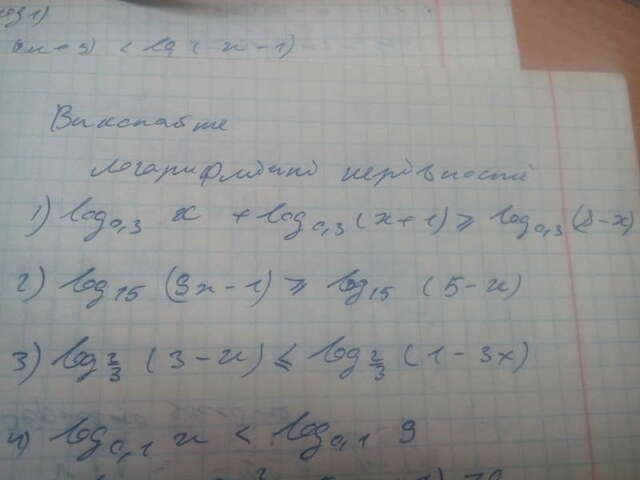 Виконайте
логарифмічні нерівності
1) log₀,₃ x + log₀,₃ (x+1) ≥ log₀,₃ (8-x)
2) log₁₅ (3x-1) ≥ log₁₅ (5-x)
3) log_{2/3} (3-x) ≤ log_{2/3} (1-3x)
4) log₀,₁ x < log₀,₁ 9